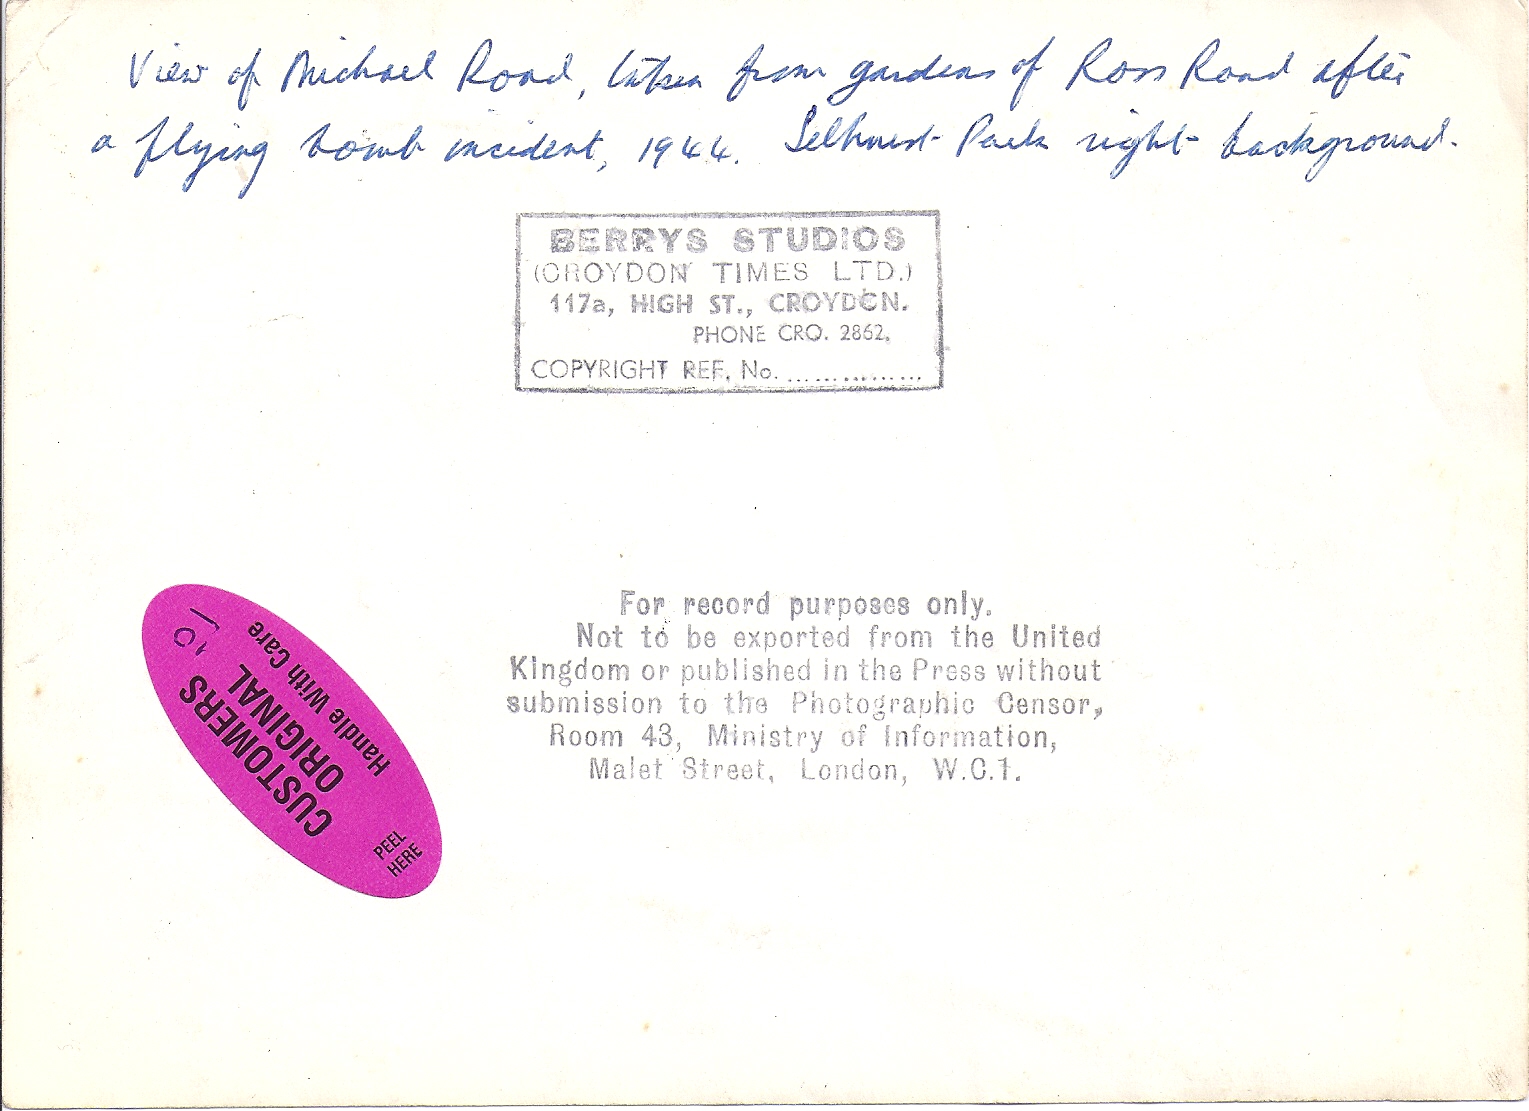 View of Michael Road, taken from gardens of Ross Road after
a flying bomb incident, 1944. Selhurst Park right background.
BERRYS STUDIOS
(CROYDON TIMES LTD.)
117a, HIGH ST., CROYDON.
PHONE CRO. 2862,
COPYRIGHT REF. No. ..............
For record purposes only.
Not to be exported from the United
Kingdom or published in the Press without
submission to the Photographic Censor,
Room 43, Ministry of Information,
Malet Street, London, W.C.1.
CUSTOMERS
ORIGINAL
Handle With Care
PEEL
HERE